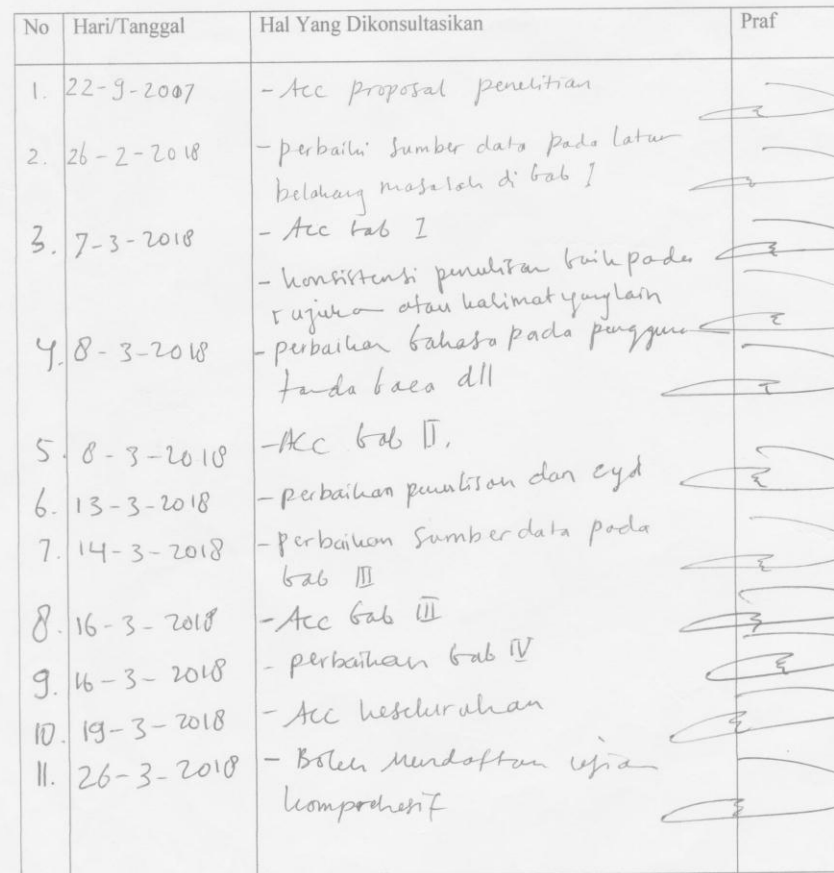 No Hari/Tanggal Hal Yang Dikonsultasikan Praf
1. 22-9-2007 - Acc proposal penelitian
2. 26-2-2018 - perbaiki sumber data pada latar
belakang masalah di bab I
3. 7-3-2018 - Acc bab I
- konsistensi penulisan baik pada
rujukan atau kalimat yang lain
4. 8-3-2018 - perbaikan bahasa pada penggunaan
tanda baca dll
5. 8-3-2018 - Acc bab II.
6. 13-3-2018 - perbaikan penulisan dan eyd
7. 14-3-2018 - perbaikan sumber data pada
bab III
8. 16-3-2018 - Acc bab III
9. 16-3-2018 - perbaikan bab IV
10. 19-3-2018 - Acc keseluruhan
11. 26-3-2018 - Boleh mendaftar ujian
komprehesif